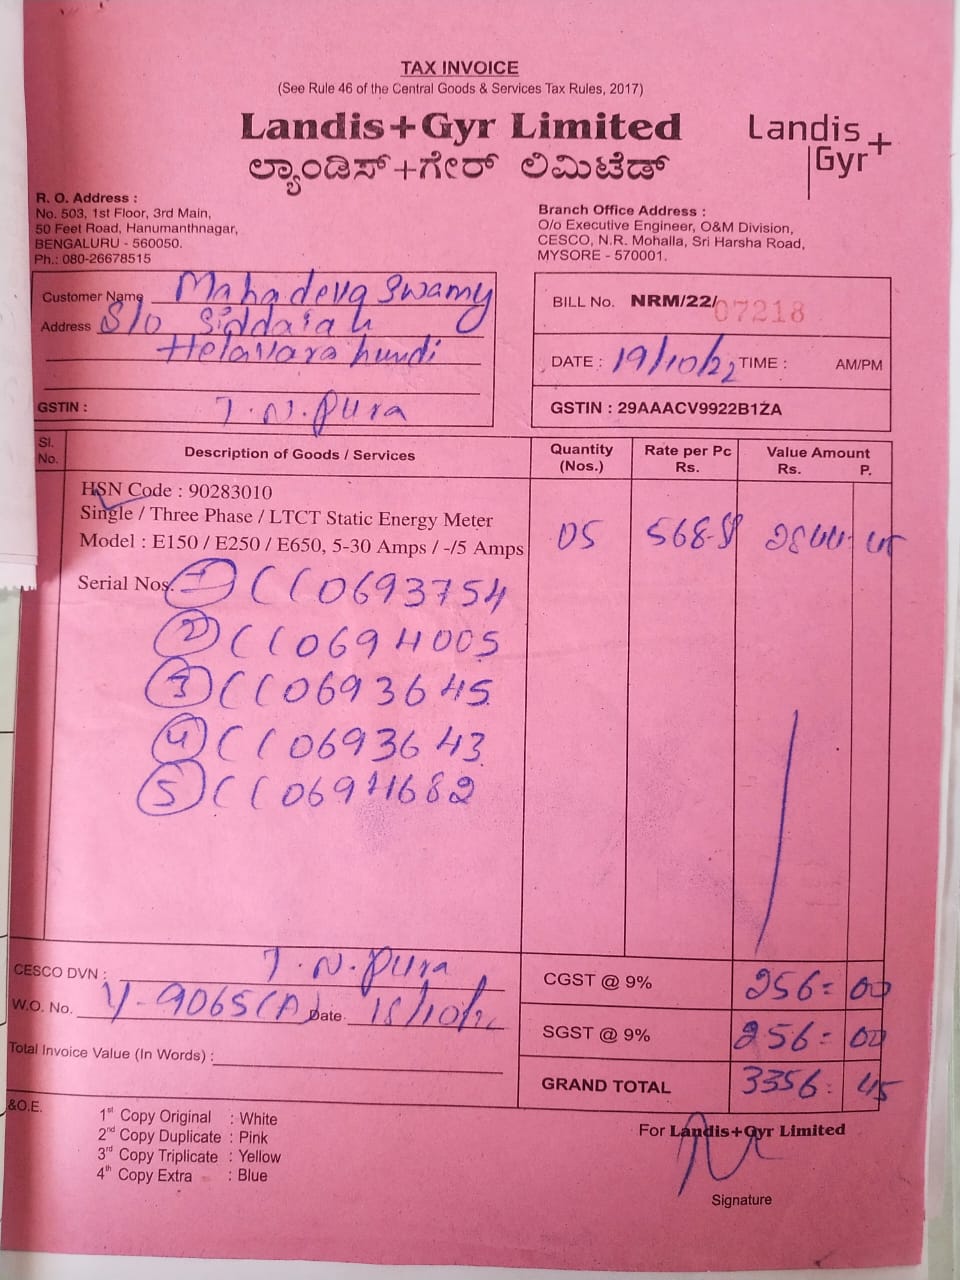 TAX INVOICE
(See Rule 46 of the Central Goods & Services Tax Rules, 2017)
Landis+Gyr Limited
ಲ್ಯಾಂಡಿಸ್+ಗೇರ್ ಲಿಮಿಟೆಡ್
Landis
Gyr+
R. O. Address :
No. 503, 1st Floor, 3rd Main,
50 Feet Road, Hanumanthnagar,
BENGALURU - 560050.
Ph.: 080-26678515
Branch Office Address :
O/o Executive Engineer, O&M Division,
CESCO, N.R. Mohalla, Sri Harsha Road,
MYSORE - 570001.
Customer Name Mahadeva Swamy
Address S/o Siddaiah
Helavara hundi
GSTIN : T.N.Pura
BILL No. NRM/22/07218
DATE : 19/10/22 TIME : AM/PM
GSTIN : 29AAACV9922B1ZA
Sl. No. Description of Goods / Services Quantity (Nos.) Rate per Pc Rs. Value Amount Rs. P.
HSN Code : 90283010
Single / Three Phase / LTCT Static Energy Meter
Model : E150 / E250 / E650, 5-30 Amps / -/5 Amps 05 2844- 45
Serial Nos. 1 CC0693754
2 CC0694005
3 CC0693645
4 CC0693643
5 CC0694682
CESCO DVN : T.N.Pura
W.O. No. Y-9065(A) Date 18/10/22
Total Invoice Value (In Words) :
CGST @ 9% 256= 00
SGST @ 9% 256= 00
GRAND TOTAL 3356= 45
&O.E.
1st Copy Original : White
2nd Copy Duplicate : Pink
3rd Copy Triplicate : Yellow
4th Copy Extra : Blue
For Landis+Gyr Limited
Signature